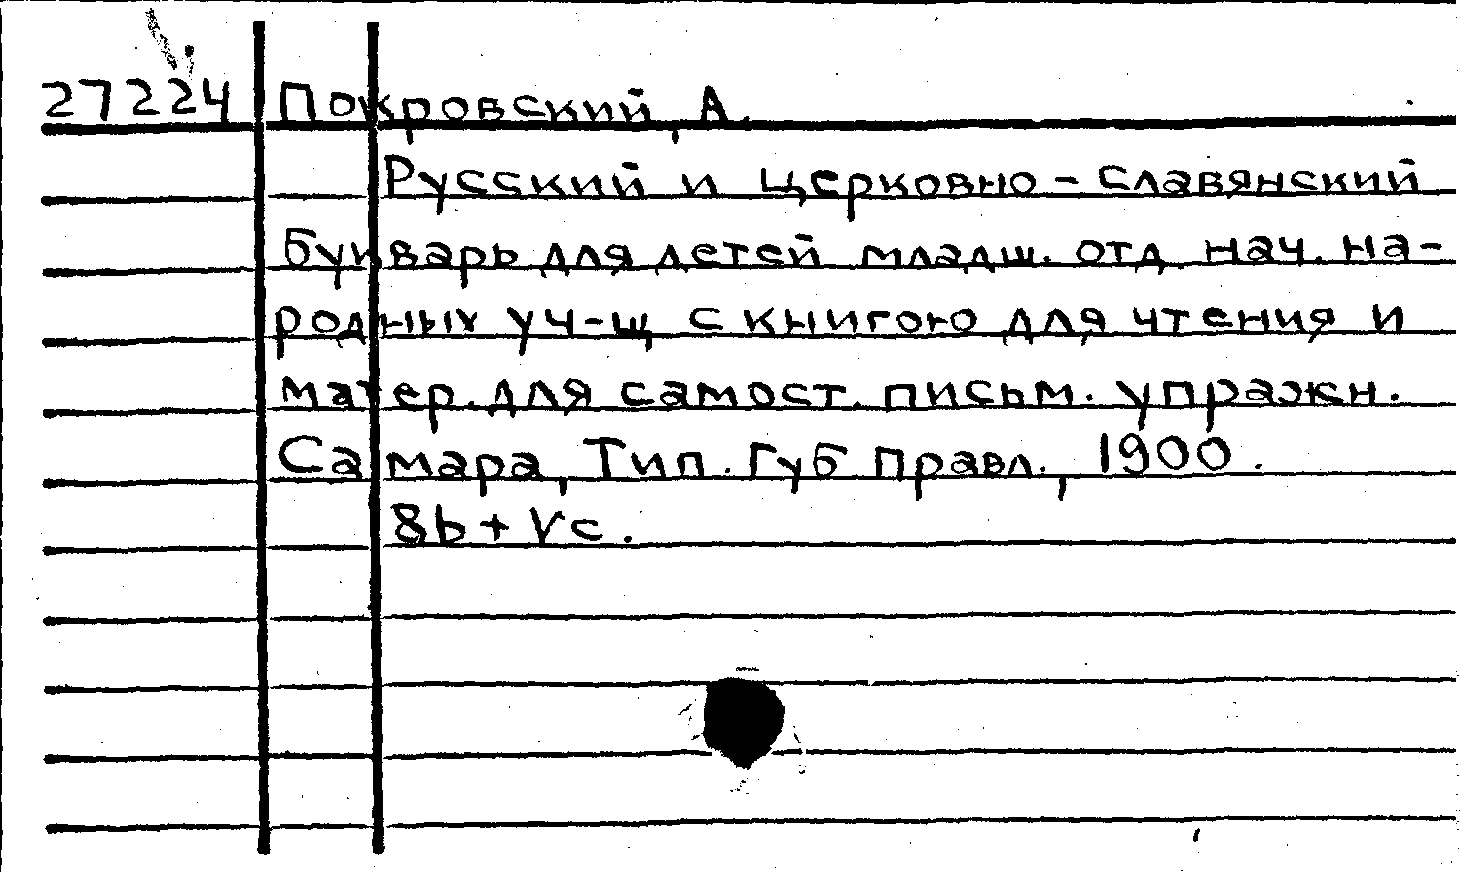 27224 Покровский, А.
Русский и церковно-славянский
букварь для детей младш. отд. нач. на-
родных уч-щ с книгою для чтения и
матер. для самост. письм. упражн.
Самара, Тип. Губ Правл., 1900.
8b + Vc.